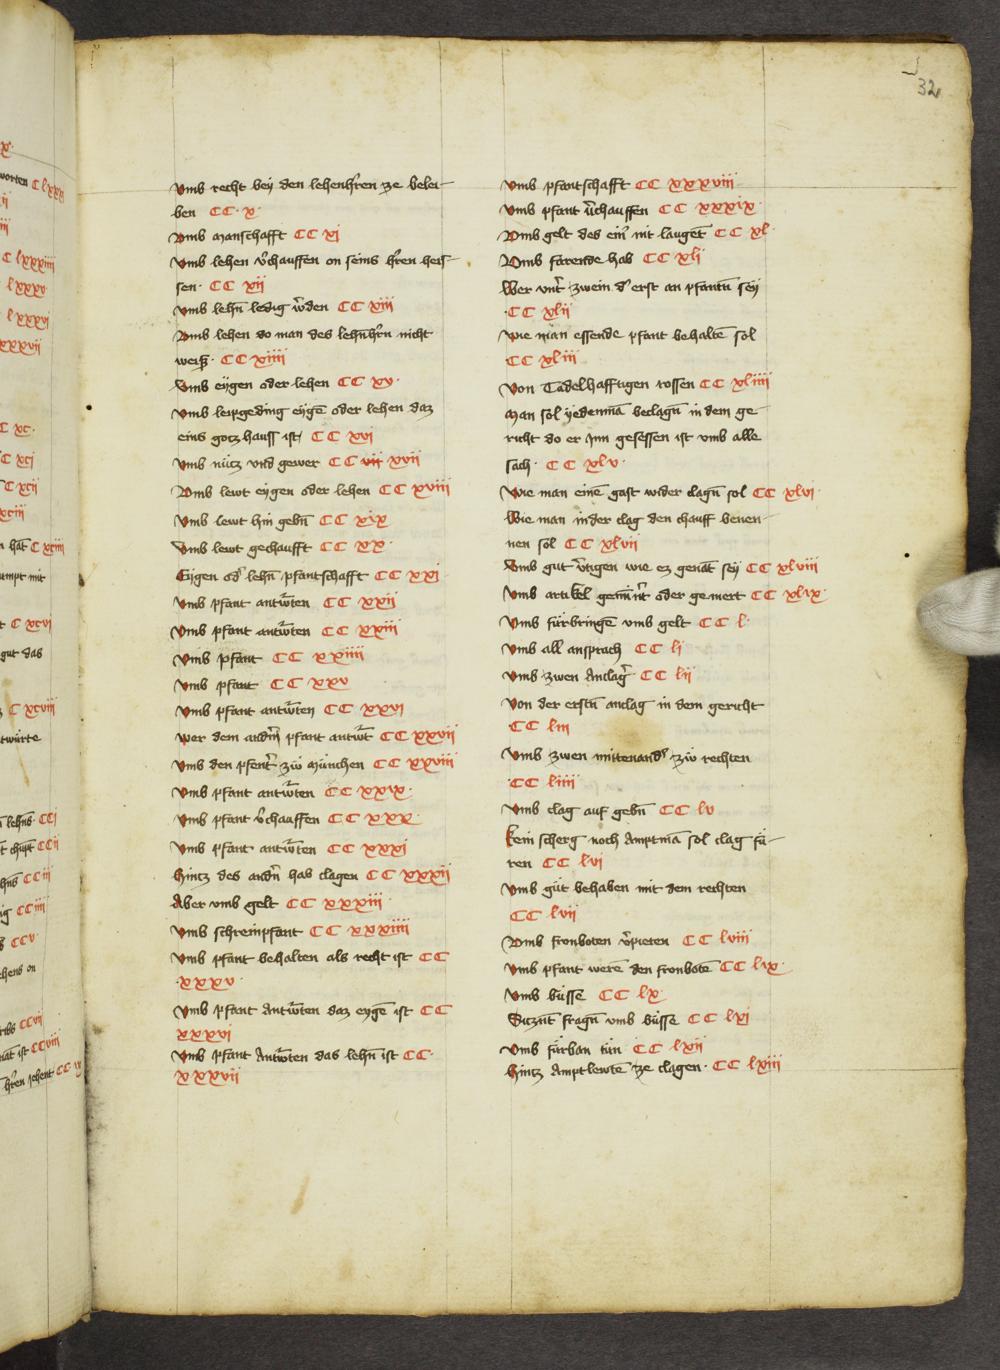 32
Vmb recht bey den lehenh̄ren ze belei-
ben CC·x·
Vmb manschafft CC xi
Vmb lehen v̄chauffen on seins h̄ren heis-
sen· CC xii
Vmb lehn̄ ledig w̄den CC xiii
Vmb lehen do man des lehn̄h̄rn nicht
weiß· CC xiiii
Vmb eygen oder lehen CC xv·
Vmb leipgeding eygē oder lehen daz
eins gotz hauss ist CC xvi
Vmb nutz vnd gewer CC vii xvii
Vmb lewt eygen oder lehen CC xviii
Vmb lewt hin gebn̄ CC xix
Vmb lewt gechaufft CC xx·
Eygen od' lehn̄ pfantschafft CC xxi·
Vmb pfant antw̄ten CC xxii
Vmb pfant antw̄ten CC xxiii
Vmb pfant CC xxiiii
Vmb pfant CC xxv
Vmb pfant antw̄ten CC xxvi
Wer dem andn̄ pfant antw̄t CC xxvii
Vmb den pfent' zů München CC xxviii
Vmb pfant antw̄ten CC xxix·
Vmb pfant v̄chauffen CC xxx·
Vmb pfant antw̄ten CC xxxi
Hintz des andn̄ hab clagen CC xxxii
Aber vmb gelt CC xxxiii·
Vmb schreinpfant CC xxxiiii
Vmb pfant behalten als recht ist CC
·xxxv·
Vmb pfant Antw̄ten daz eygē ist CC
xxxvi
Vmb pfant Antw̄ten das lehn̄ ist CC·
xxxvii
Vmb pfantschafft CC xxxviii
Vmb pfant v̄chauffen CC xxxix·
Vmb gelt des ein' nit laugēt CC xl·
Vmb farende hab CC xli
Wer vnt' zwein d' erst an pfantn̄ sey
·CC xlii
Wie man essende pfant behaltē sol
CC xliii
Von Tadelhafftigen rossen CC xliiii
Man sol yedermā beclagn̄ in dem ge-
richt do er Inn gesessen ist vmb alle
sach· CC xlv·
Wie man einē gast wider clagn̄ sol CC xlvi·
Wie man in der clag den chauff benen-
nen sol CC xlvii
Vmb gut v̄tigen wie ez genāt sey CC xlviii
Vmb artikel gemīnt oder gemert CC xlix·
Vmb fürbringē vmb gelt CC l·
Vmb all ansprach CC li
Vmb zwen Anclag' CC lii
Von der erstn̄ anclag in dem gericht
CC liii
Vmb zwen mittenand' zů rechten
·CC liiii
Vmb clag auf gebn̄ CC lv
Kein scherg noch Amptmā sol clag fü-
ren CC lvi
Vmb gut behaben mit dem rechten
CC lvii
Vmb fronboten v̄pieten CC lviii
Vmb pfant werē den fronbotē CC lix·
Vmb büsse CC lx·
Vmb fürban tün CC lxii
Hintz Amptlewtē ze clagen· CC lxiii